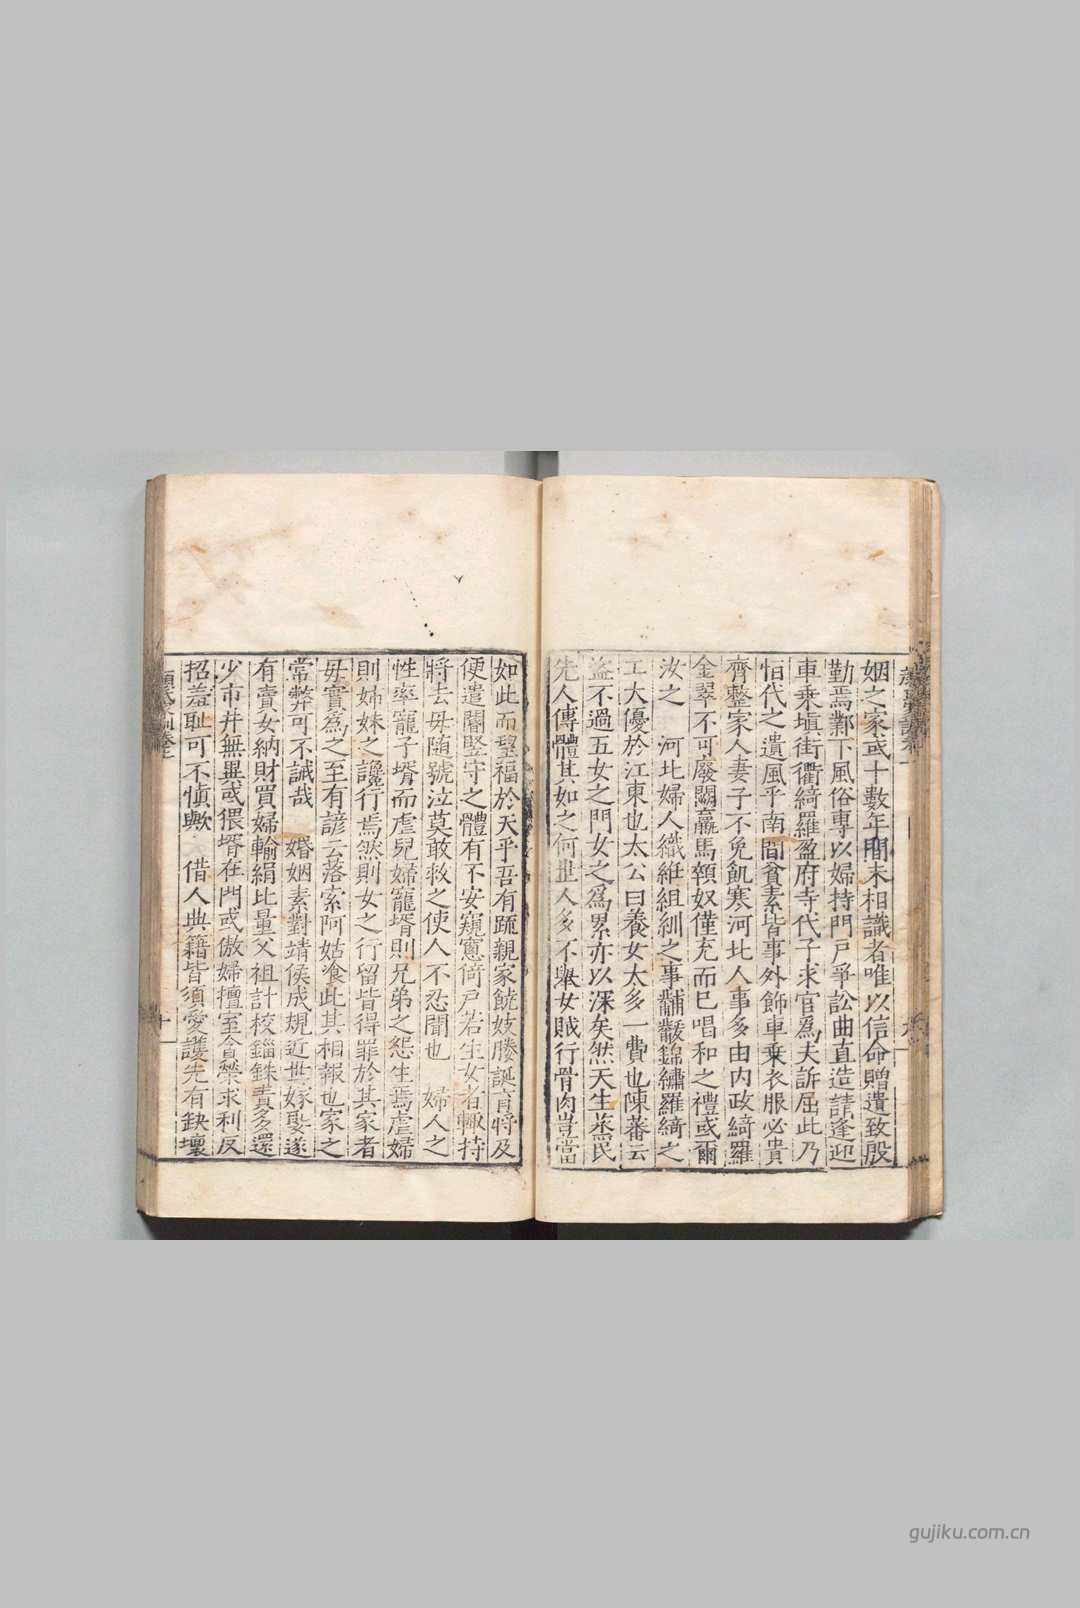 姻之家或十數年間未相識者唯以信命贈遺致殷
勤焉鄴下風俗專以婦持門戶爭訟曲直造請逢迎
車乗塡街衢綺羅盈府寺代子求官爲夫訴屈此乃
恒代之遺風乎南間貧素皆事外飾車乗衣服必貴
齊整家人妻子不免飢寒河北人事多由内政綺羅
金翠不可廢闕羸馬顇奴僅充而已唱和之禮或爾
汝之　河北婦人織紝組紃之事黼黻錦繡羅綺之
工大優於江東也太公曰養女太多一費也陳蕃云
盜不過五女之門女之爲累亦以深矣然天生蒸民
先人傳體其如之何世人多不舉女賊行骨肉豈當
如此而望福於天乎吾有䟽親家饒妓媵誕育將及
便遣閽竪守之體有不安窺窻倚戸若生女者輙持
將去母随號泣莫敢救之使人不忍聞也　婦人之
性率寵子壻而虐兒婦寵壻則兄弟之怨生焉虐婦
則姊妹之讒行焉然則女之行留皆得罪於其家者
母實爲之至有諺云落索阿姑飡此其相報也家之
常弊可不誡哉　婚姻素對靖侯成規近世嫁娶遂
有賣女納財買婦輸絹比量父祖計校錙銖責多還
少市井無異或猥壻在門或傲婦擅室貪榮求利反
招羞耻可不慎歟　借人典籍皆須愛護先有缺壞
gujiku.com.cn